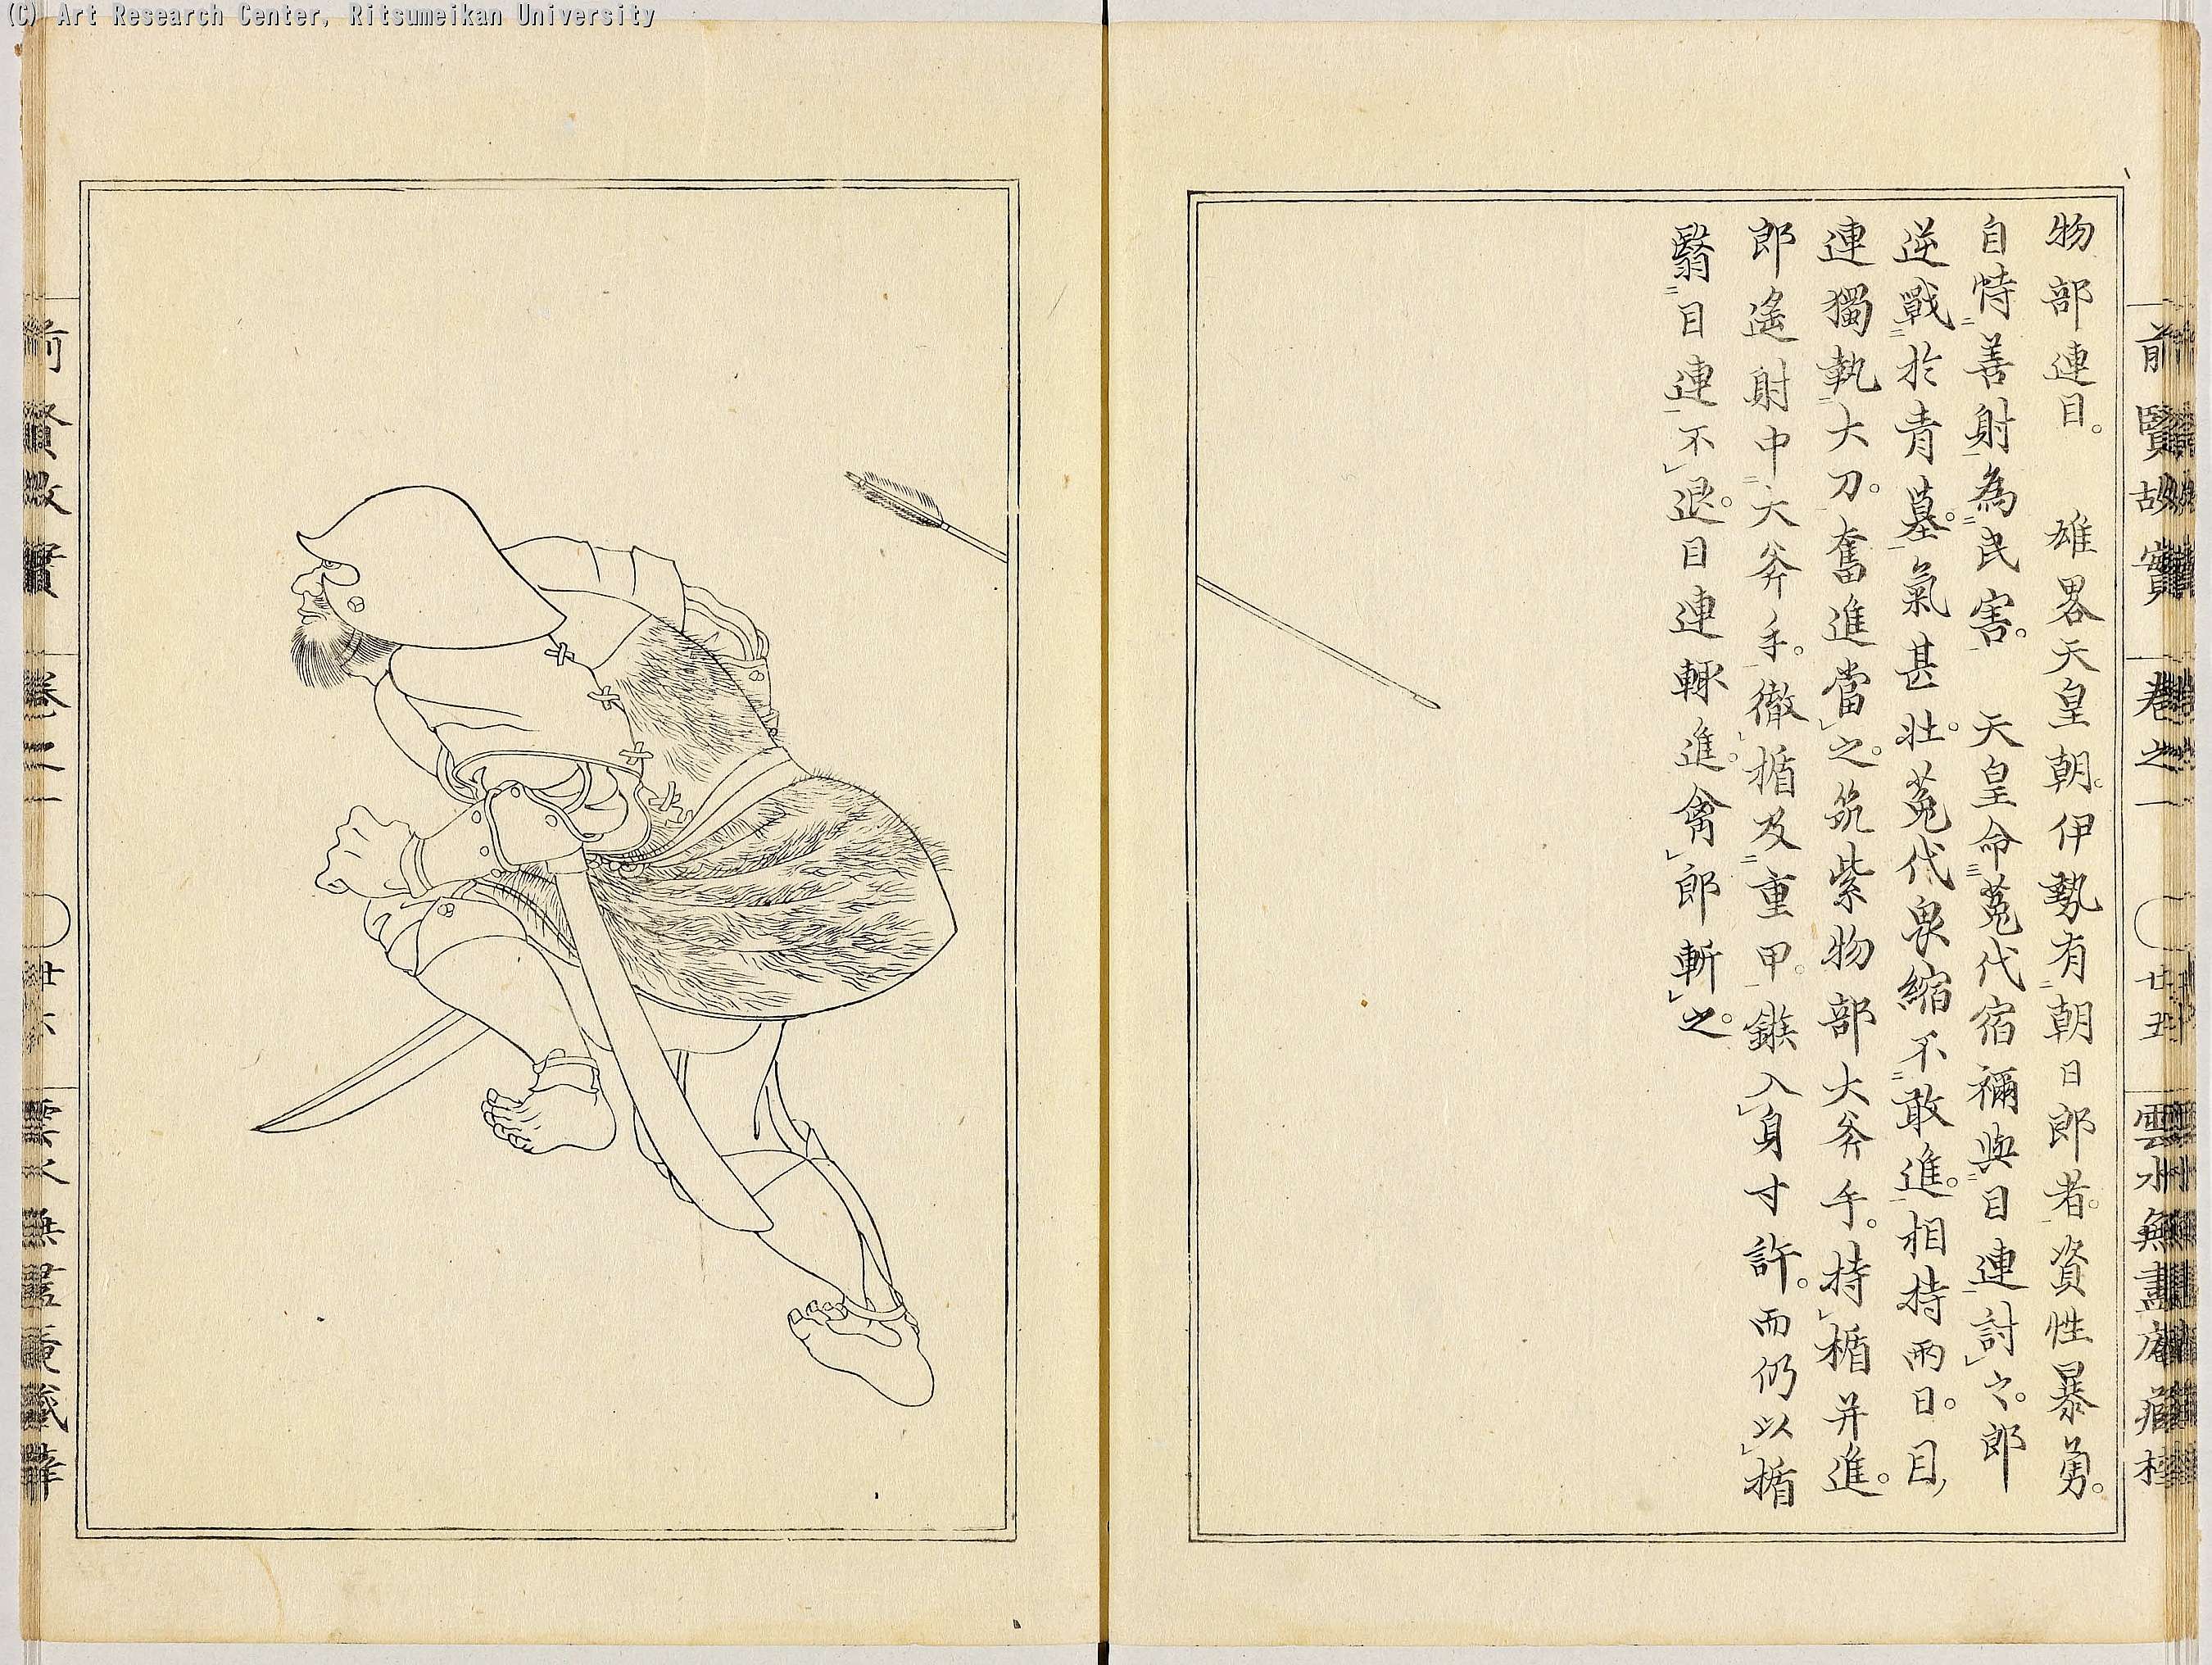 (C) Art Research Center, Ritsumeikan University
前賢故實 卷之一 廿五 雲水無盡庵藏梓
物部連目。 雄畧天皇朝。伊勢有朝日郎者。資性暴勇。
自恃善射為民害。 天皇命菟代宿禰與目連討之。郎
逆戰於青墓。氣甚壯。菟代畏縮不敢進。相持兩日。目
連獨執大刀。奮進當之。筑紫物部大斧手。持楯并進。
郎遙射中大斧手。徹楯及重甲。鏃入身寸許。而仍以楯
翳目連不退。目連輙進禽郎斬之。
前賢故實 卷之一 廿六